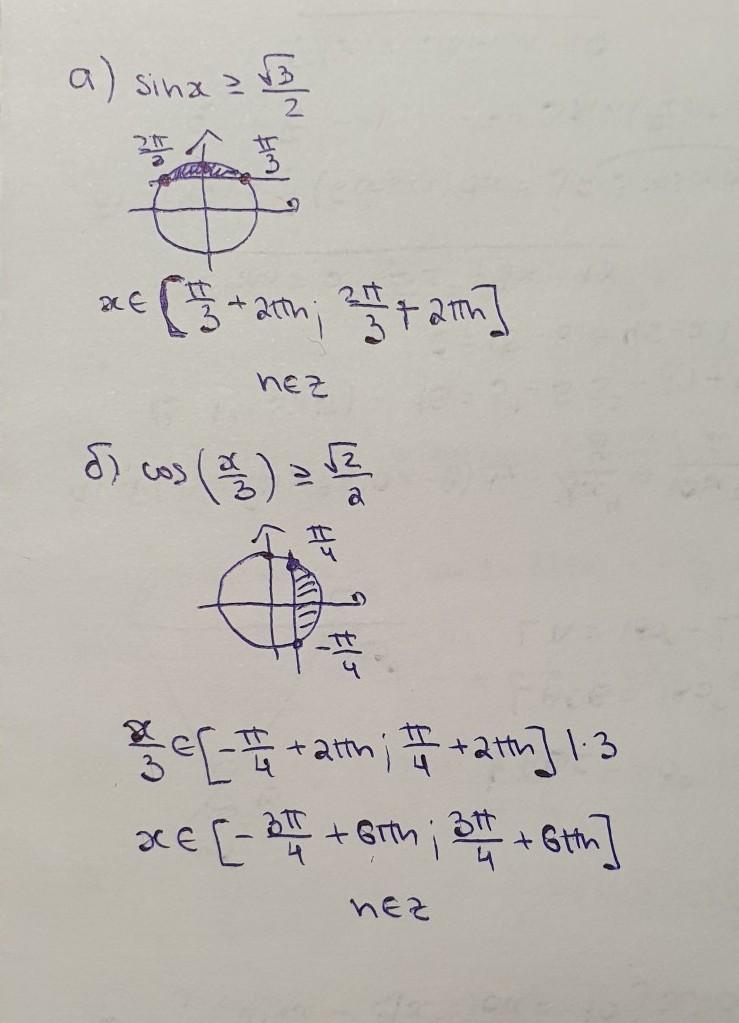 а) sinx ≥ √3/2
2π/3 π/3
x∈[π/3 + 2πn; 2π/3 + 2πn]
n∈z
б) cos(x/3) ≥ √2/2
π/4
-π/4
x/3 ∈[-π/4 + 2πn; π/4 + 2πn] |·3
x∈[-3π/4 + 6πn; 3π/4 + 6πn]
n∈z